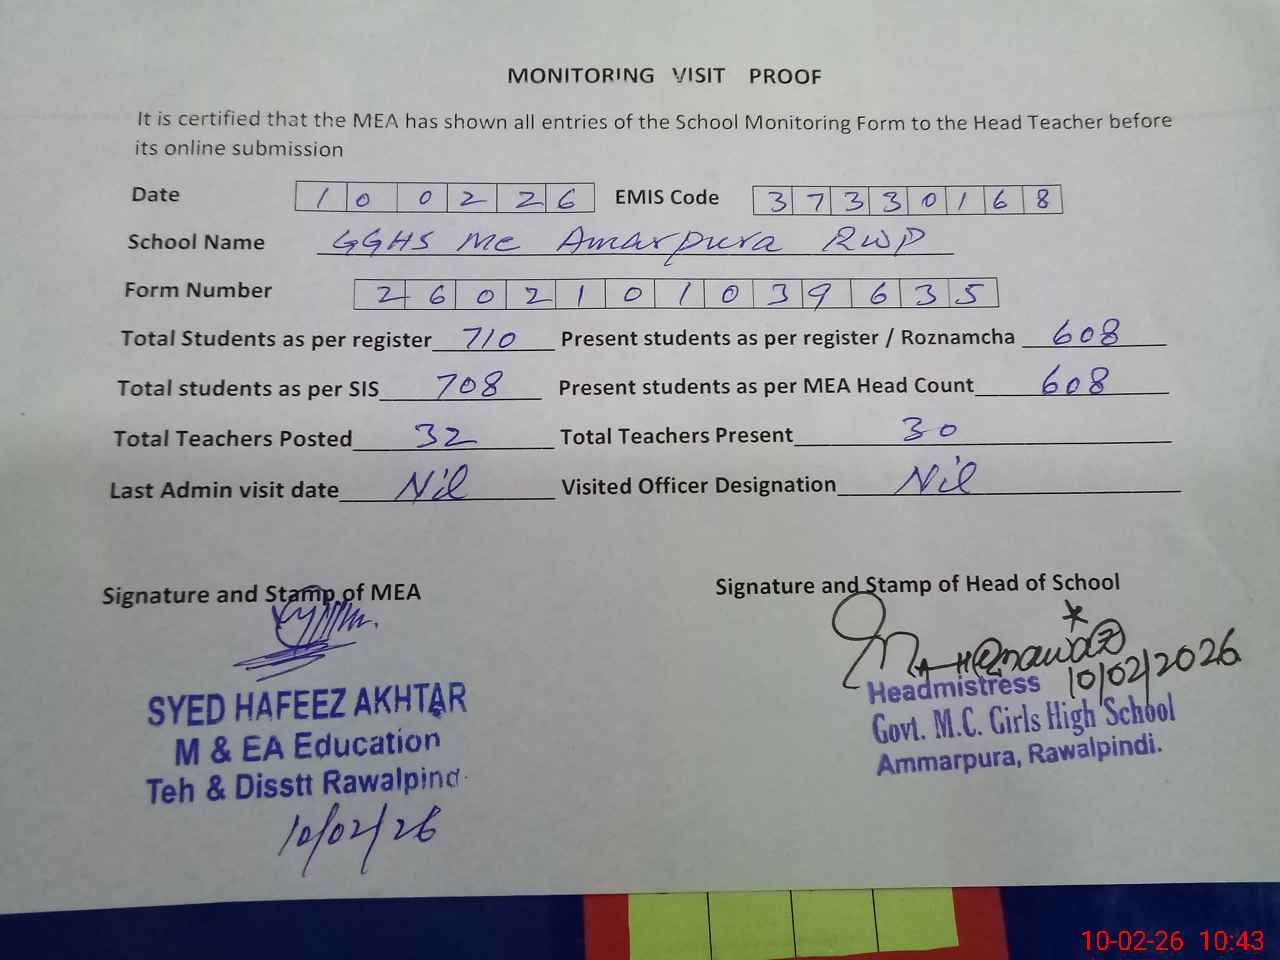 MONITORING VISIT PROOF
It is certified that the MEA has shown all entries of the School Monitoring Form to the Head Teacher before
its online submission
Date 10 02 26 EMIS Code 37330168
School Name GGHS MC Amarpura RWP
Form Number 2602101039635
Total Students as per register 710 Present students as per register / Roznamcha 608
Total students as per SIS 708 Present students as per MEA Head Count 608
Total Teachers Posted 32 Total Teachers Present 30
Last Admin visit date Nil Visited Officer Designation Nil
Signature and Stamp of MEA Signature and Stamp of Head of School
SYED HAFEEZ AKHTAR
M & EA Education
Teh & Disstt Rawalpind
10/02/26
10/02/2026
Headmistress
Govt. M.C. Girls High School
Ammarpura, Rawalpindi.
10-02-26 10:43